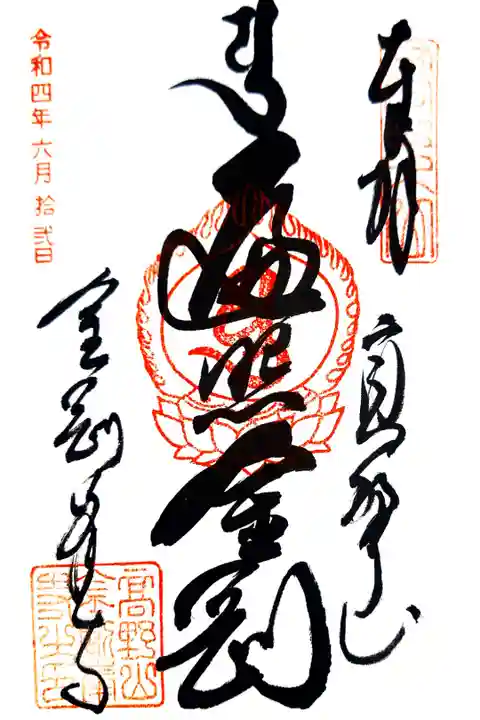 奉拝
高野山
遍照金剛
金剛峯寺
令和四年六月拾弐日
高野山